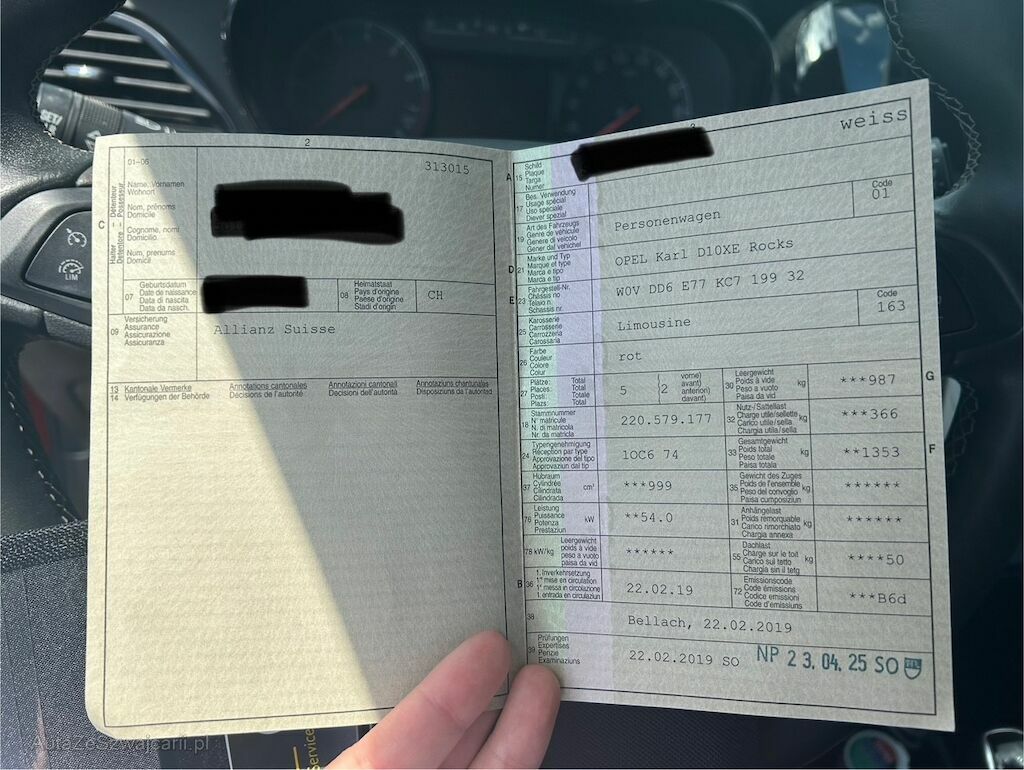 2
01–06
313015
C
Halter – Détenteur
Detentore – Possessur
Name, Vornamen
Wohnort
Nom, prénoms
Domicile
Cognome, nomi
Domicilio
Num, prenums
Domicil
07
Geburtsdatum
Date de naissance
Data di nascita
Data da nasch.
08
Heimatstaat
Pays d'origine
Paese d'origine
Stadi d'origin
CH
09
Versicherung
Assurance
Assicurazione
Assicuranza
Allianz Suisse
13 Kantonale Vermerke
14 Verfügungen der Behörde
Annotations cantonales
Décisions de l'autorité
Annotazioni cantonali
Decisioni dell'autorità
Annotaziuns chantunalas
Disposiziuns da l'autoritad
weiss
A 15
Schild
Plaque
Targa
Numer
17
Bes. Verwendung
Usage spécial
Uso speciale
Diever spezial
19
Art des Fahrzeugs
Genre de véhicule
Genere di veicolo
Gener dal vehichel
Personenwagen
Code
01
D 21
Marke und Typ
Marque et type
Marca e tipo
Marca e tip
OPEL Karl D10XE Rocks
E 23
Fahrgestell-Nr.
Châssis no
Telaio n.
Schassis nr.
W0V DD6 E77 KC7 199 32
25
Karosserie
Carrosserie
Carrozzeria
Carossaria
Limousine
Code
163
26
Farbe
Couleur
Colore
Colur
rot
27
Plätze: Total
Places: Total
Posti: Totale
Plazs: Total
5 (2
vorne)
avant)
anteriori)
davant)
30
Leergewicht
Poids à vide
Peso a vuoto
Paisa da vid
kg
***987
G
18
Stammnummer
N° matricule
N. di matricola
Nr. da matricla
220.579.177
32
Nutz-/Sattellast
Charge utile/sellette
Carico utile/sella
Chargia utila/sella
kg
***366
24
Typengenehmigung
Réception par type
Approvazione del tipo
Approvaziun dal tip
1OC6 74
33
Gesamtgewicht
Poids total
Peso totale
Paisa totala
kg
**1353
F
37
Hubraum
Cylindrée
Cilindrata
Cilindrada
cm³
***999
35
Gewicht des Zuges
Poids de l'ensemble
Peso del convoglio
Paisa cumposiziun
kg
******
76
Leistung
Puissance
Potenza
Prestaziun
kW
**54.0
31
Anhängelast
Poids remorquable
Carico rimorchiato
Chargia annexa
kg
******
78 kW/kg
Leergewicht
poids à vide
peso a vuoto
paisa da vid
******
55
Dachlast
Charge sur le toit
Carico sul tetto
Chargia sin il tetg
kg
****50
B 36
1. Inverkehrsetzung
1re mise en circulation
1a messa in circolazione
1. entrada en circulaziun
22.02.19
72
Emissionscode
Code émissions
Codice emissioni
Code d'emissiuns
***B6d
38
Bellach, 22.02.2019
39
Prüfungen
Expertises
Perizie
Examinaziuns
22.02.2019 SO
NP 23. 04. 25 SO
SET/
LIM
AutaZeSzwajcarii.pl
Service